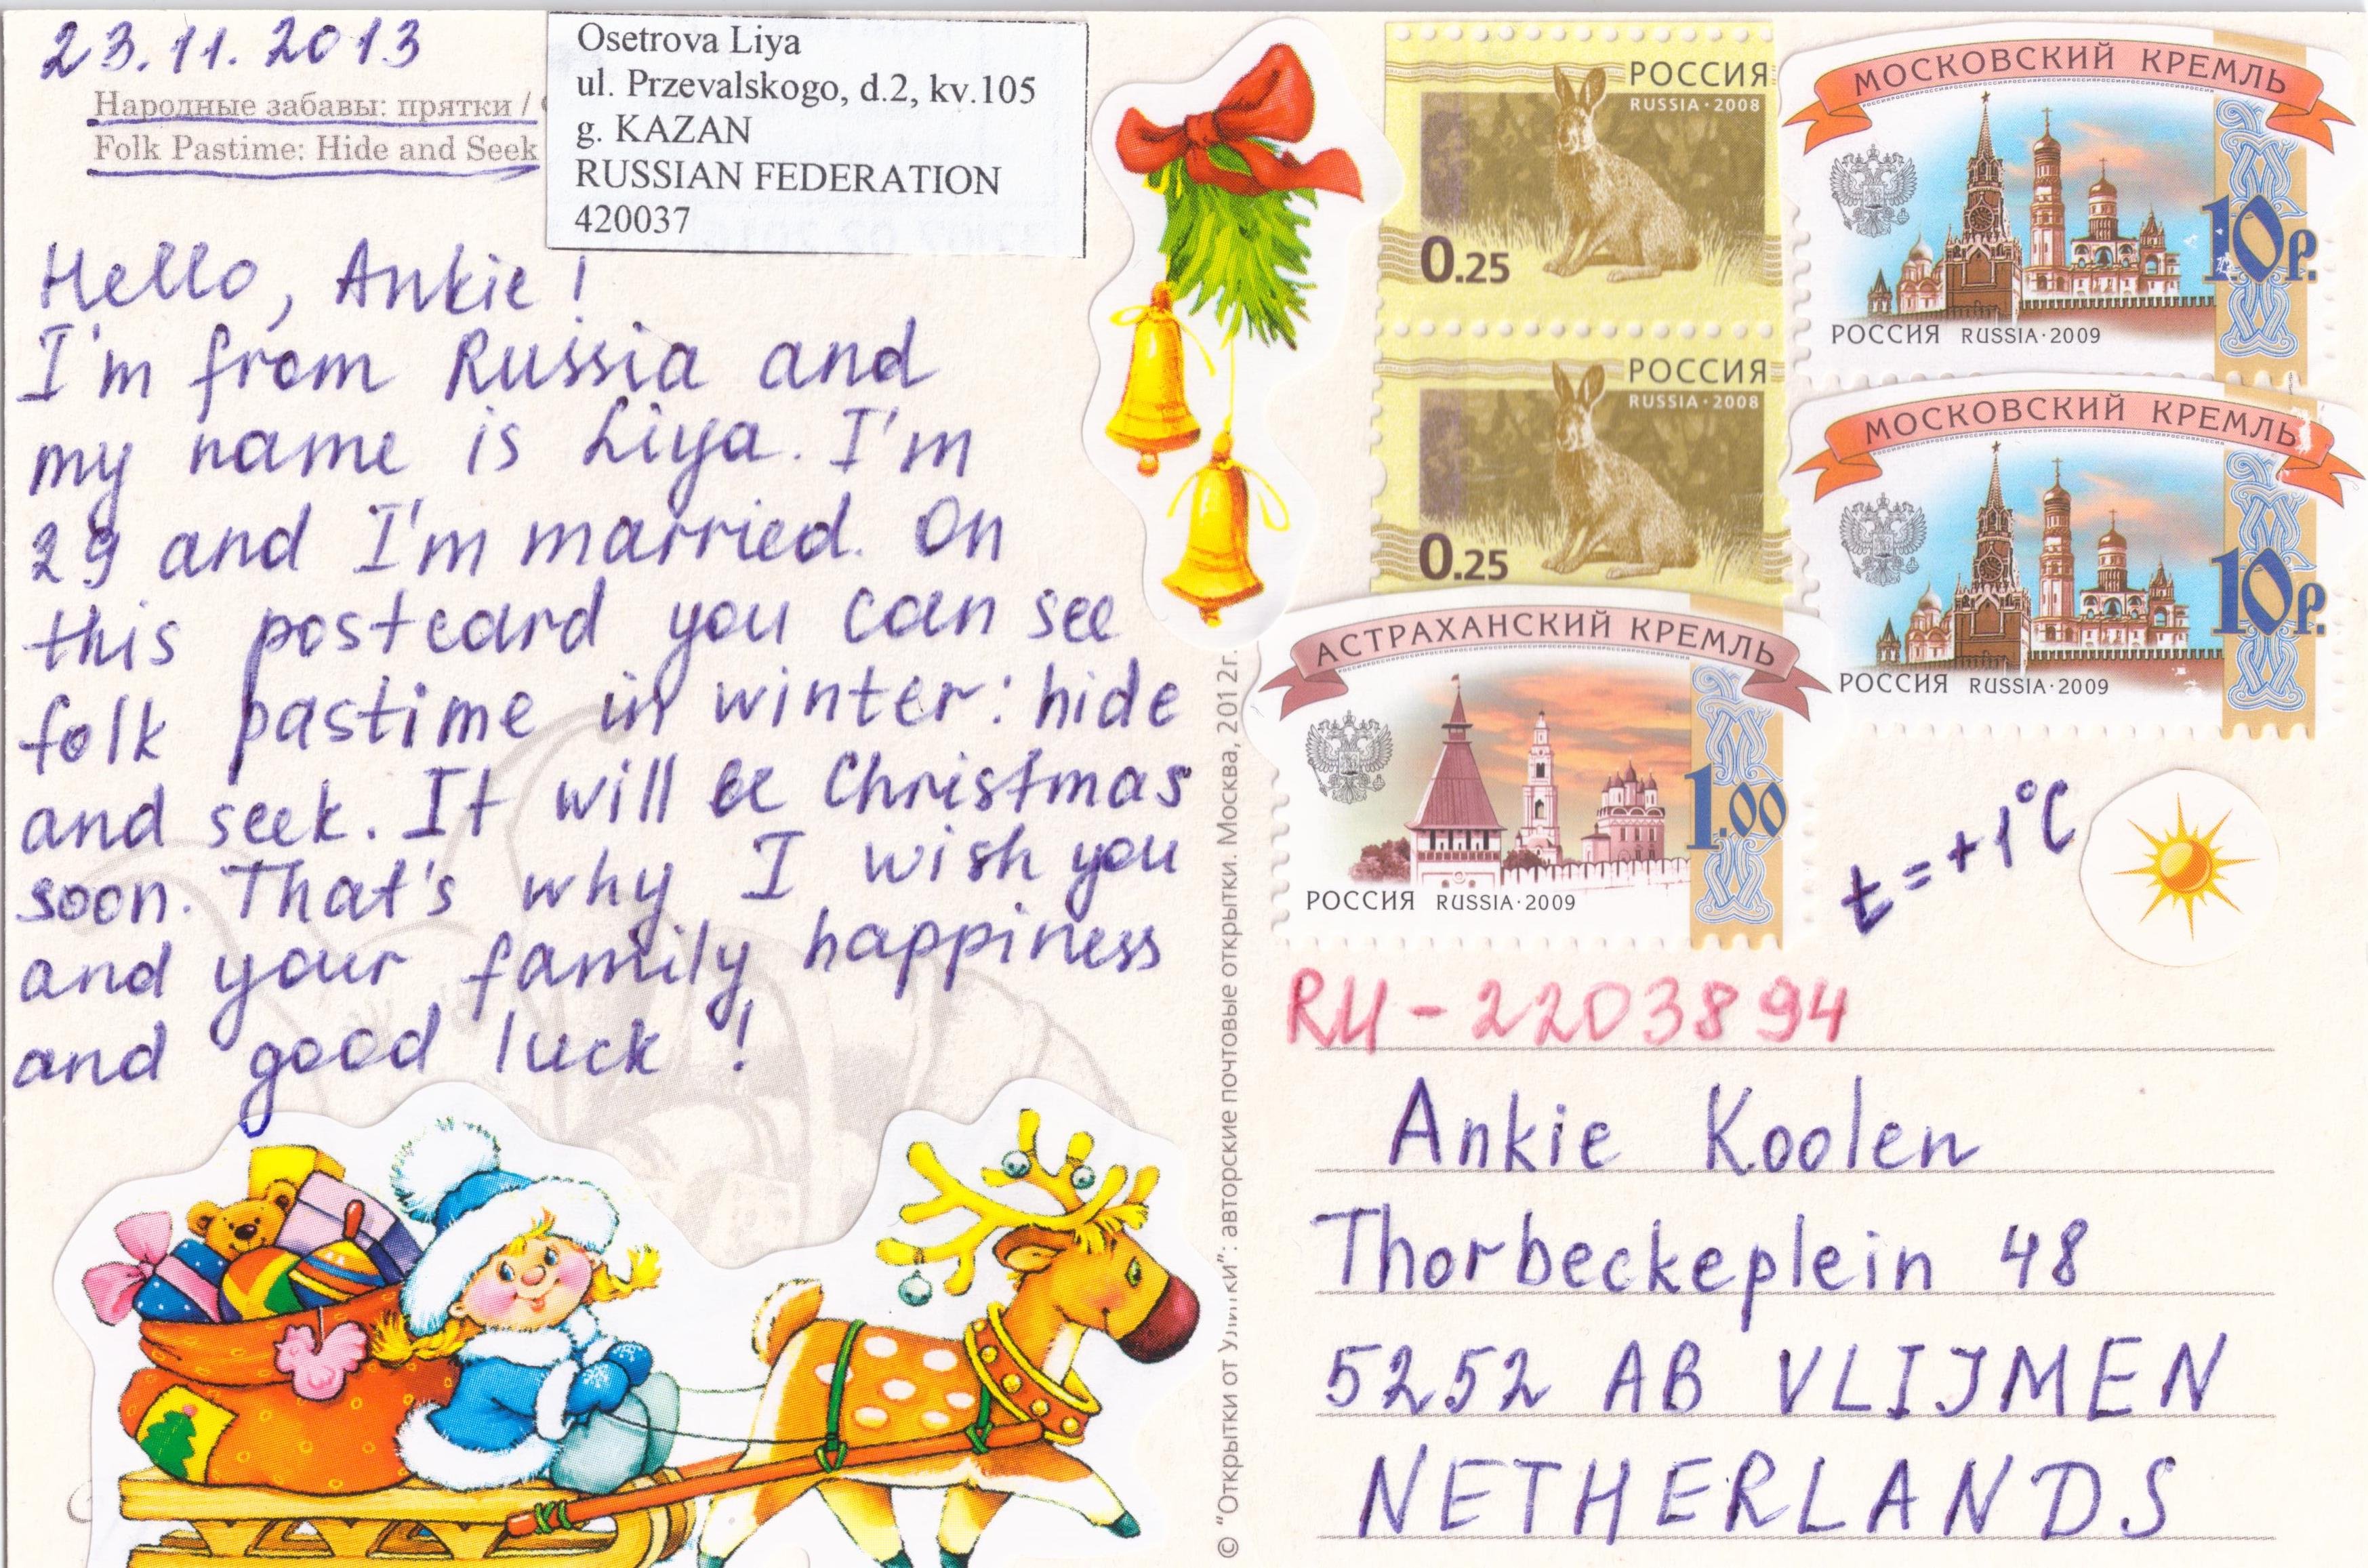 23.11.2013
Народные забавы: прятки /
Folk Pastime: Hide and Seek
Osetrova Liya
ul. Przevalskogo, d.2, kv.105
g. KAZAN
RUSSIAN FEDERATION
420037
Hello, Ankie!
I'm from Russia and
my name is Liya. I'm
29 and I'm married. On
this postcard you can see
folk pastime in winter: hide
and seek. It will be Christmas
soon. That's why I wish you
and your family happiness
and good luck!
© "Открытки от Улитки": авторские почтовые открытки. Москва, 2012г.
РОССИЯ
RUSSIA·2008
0.25
РОССИЯ
RUSSIA·2008
0.25
МОСКОВСКИЙ КРЕМЛЬ
10р.
РОССИЯ RUSSIA·2009
МОСКОВСКИЙ КРЕМЛЬ
10р.
РОССИЯ RUSSIA·2009
АСТРАХАНСКИЙ КРЕМЛЬ
1.00
РОССИЯ RUSSIA·2009
t=+1°C
RU-2203894
Ankie Koolen
Thorbeckeplein 48
5252 AB VLIJMEN
NETHERLANDS